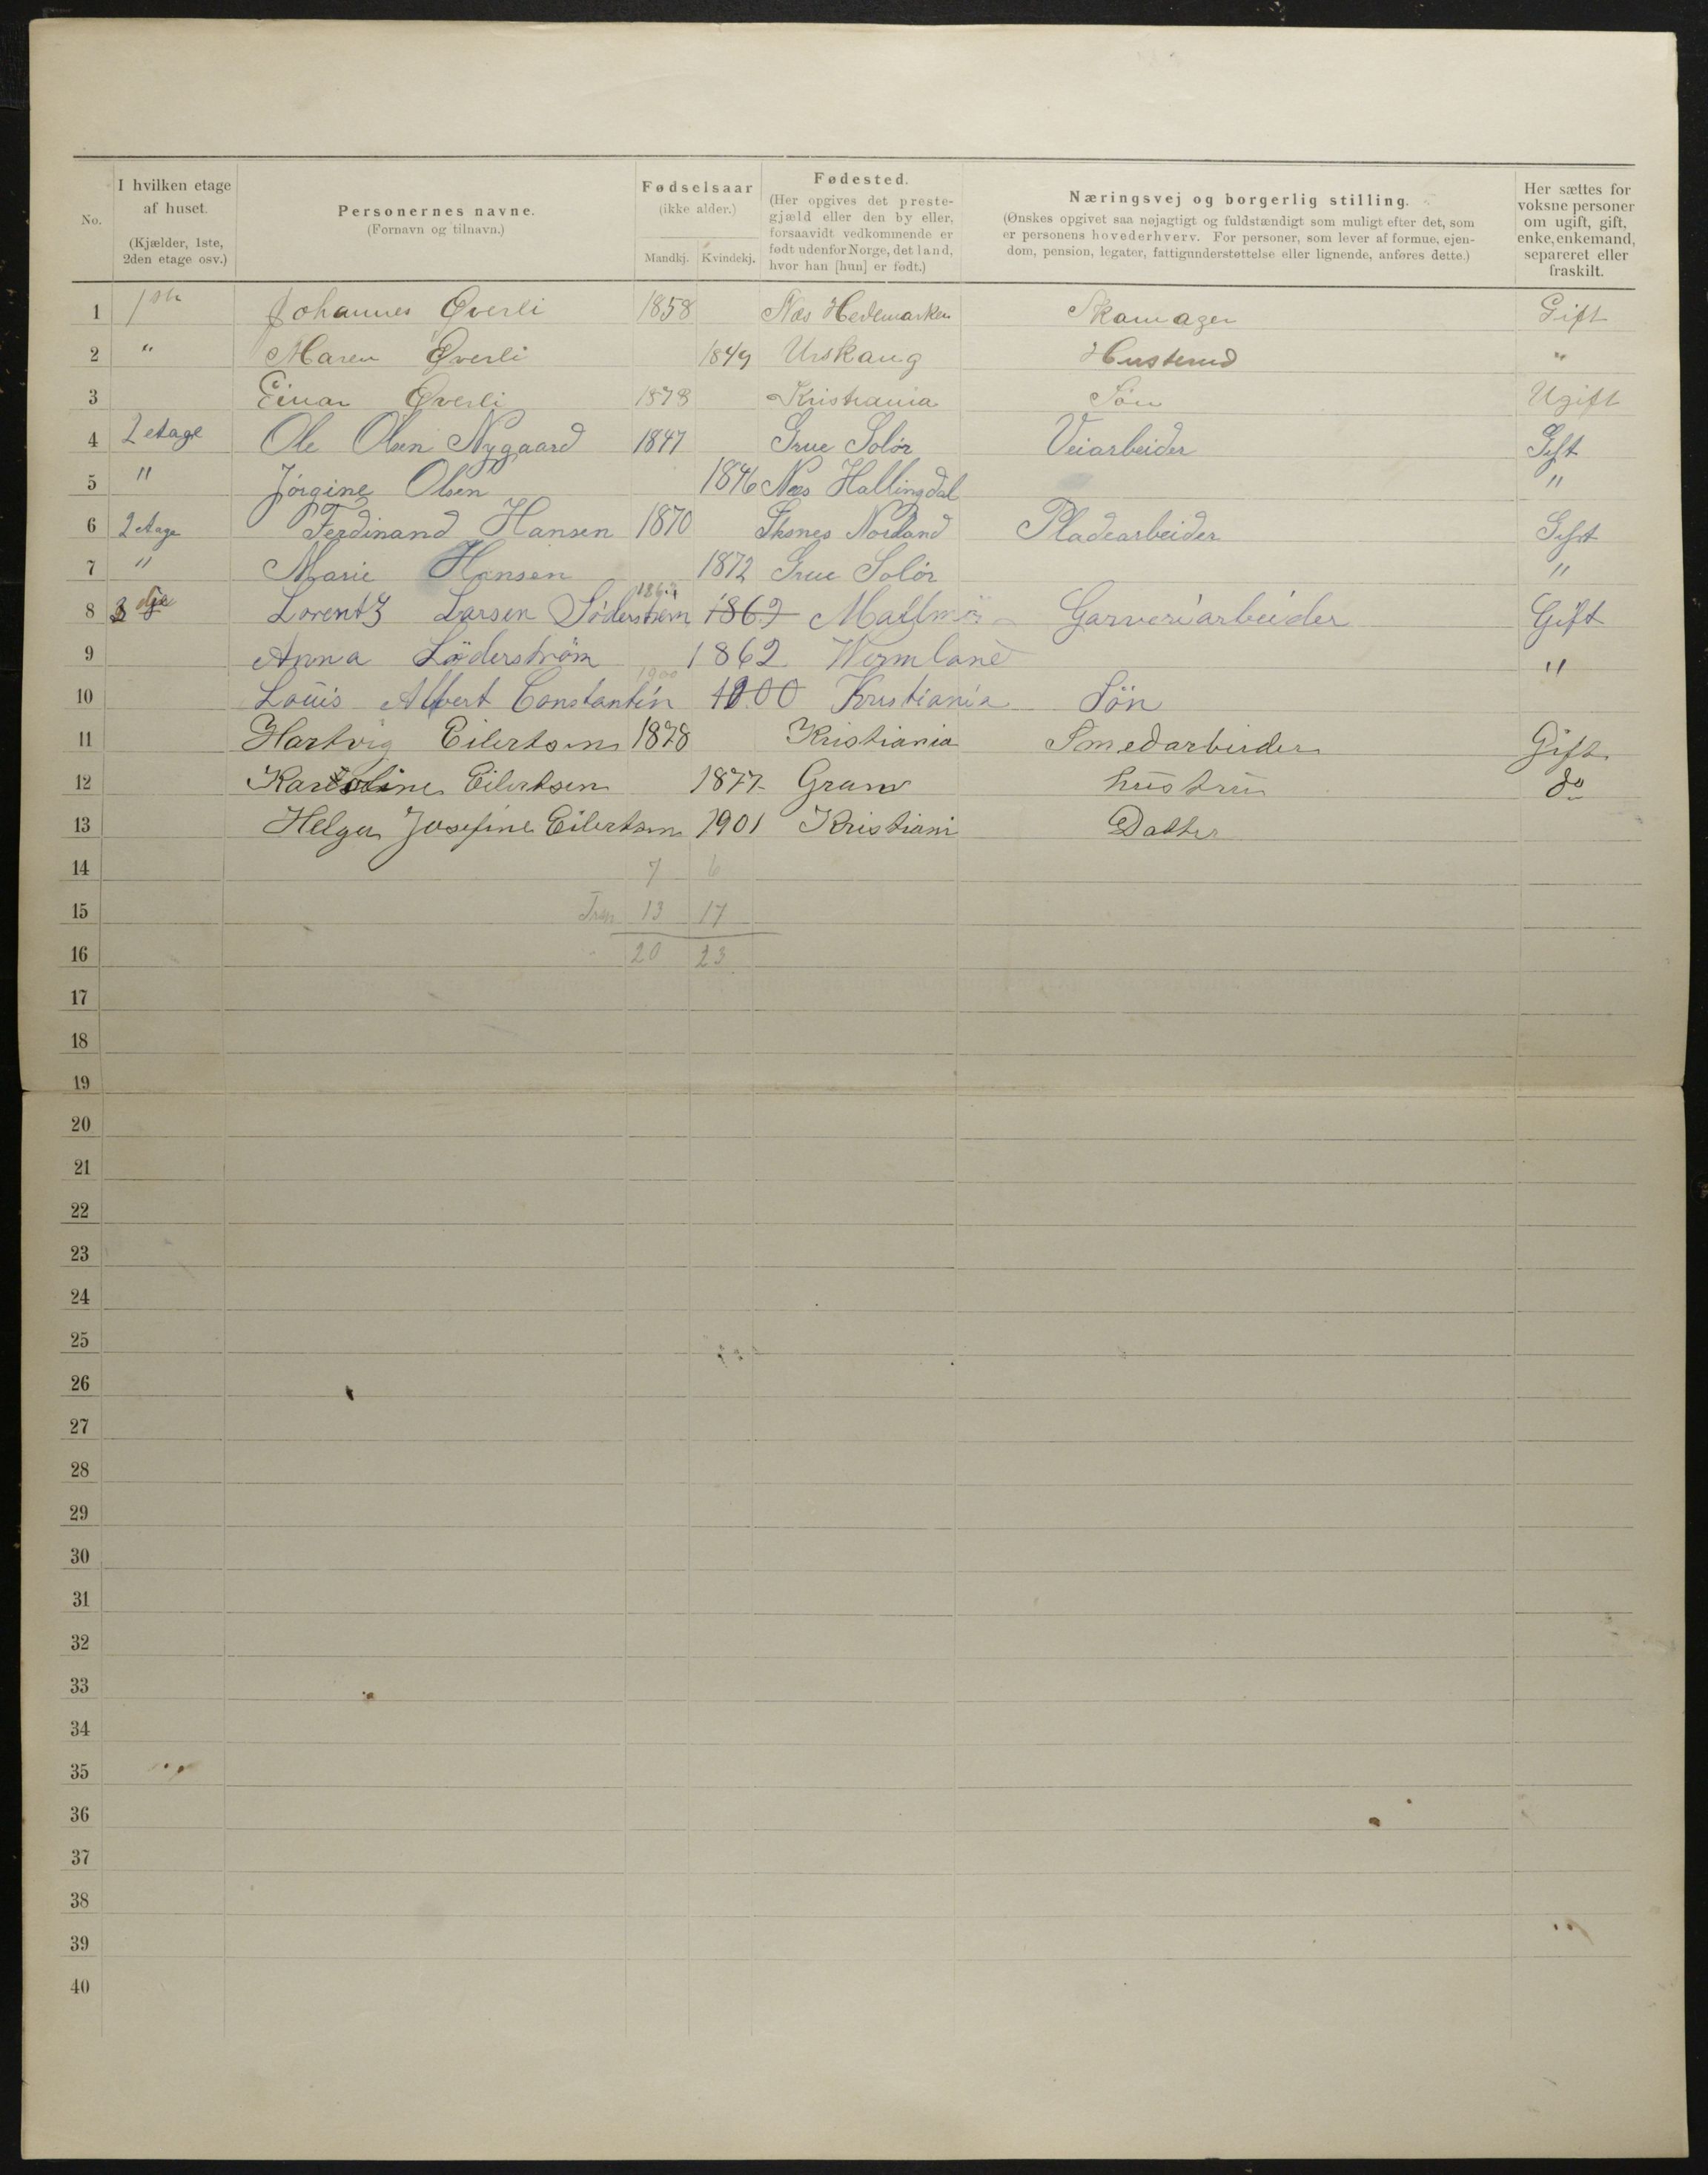 No.
I hvilken etage af huset. (Kjælder, 1ste, 2den etage osv.)
Personernes navne. (Fornavn og tilnavn.)
Fødselsaar (ikke alder.) Mandkj. Kvindekj.
Fødested. (Her opgives det prestegjæld eller den by eller, forsaavidt vedkommende er født udenfor Norge, det land, hvor han [hun] er født.)
Næringsvej og borgerlig stilling. (Ønskes opgivet saa nøjagtigt og fuldstændigt som muligt efter det, som er personens hovederhverv. For personer, som lever af formue, ejendom, pension, legater, fattigunderstøttelse eller lignende, anføres dette.)
Her sættes for voksne personer om ugift, gift, enke, enkemand, separeret eller fraskilt.
1 1ste Johannes Øverli 1858 Næs Hedemarken Skomager Gift
2 " Maren Øverli 1849 Urskaug Husterud "
3 Einar Øverli 1878 Kristiania Søn Ugift
4 2 etage Ole Olsen Nygaard 1847 Grue Solør Veiarbeider Gift
5 " Jørgine Olsen 1846 Næs Hallingdal "
6 2 etage Ferdinand Hansen 1870 Nordland Pladearbeider Gift
7 " Marie Hansen 1872 Grue Solør "
8 3 dje Lorentz Larsen Söderstrøm 1869 Mallmö Garveriarbeider Gift
9 Anna Söderström 1862 Wermland "
10 Louis Albert Constantin 1900 1900 Kristiania Sön
11 Hartvig Eilertsen 1878 Kristiania Smedarbeider Gift
12 Karoline Eilertsen 1877 Gran hustru do
13 Helga Josefine Eilertsen 1901 Kristiani Datter
14 7 6
15 Tran 13 17
16 20 23
17
18
19
20
21
22
23
24
25
26
27
28
29
30
31
32
33
34
35
36
37
38
39
40